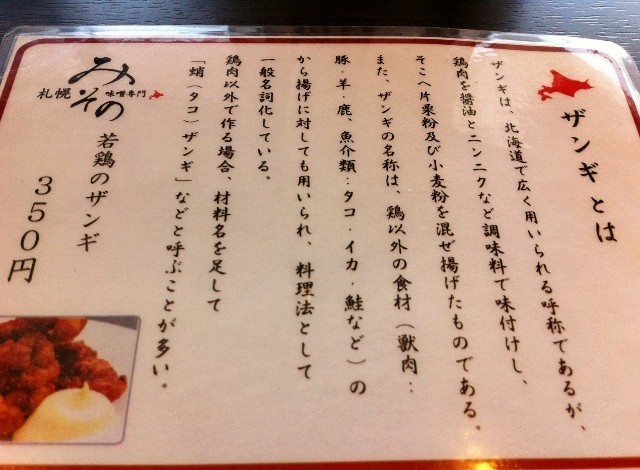 ザンギとは
ザンギは、北海道で広く用いられる呼称であるが、
鶏肉を醤油とニンニクなど調味料で味付けし、
そこへ片栗粉及び小麦粉を混ぜ揚げたものである。
また、ザンギの名称は、鶏以外の食材（獣肉：
豚・羊・鹿、魚介類：タコ・イカ・鮭など）の
から揚げに対しても用いられ、料理法として
一般名詞化している。
鶏肉以外で作る場合、材料名を足して
「蛸（タコ）ザンギ」などと呼ぶことが多い。
札幌
みその
味噌専門
若鶏のザンギ
３５０円